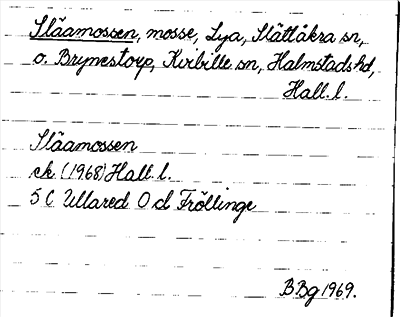 Slåamossen, mosse, Lya, Slättåkra sn,
o. Brynestorp, Kvibille sn, Halmstads hd,
Hall. l.
Slåamossen
ek (1968) Hall. l.
5 C Ullared O d Fröllinge
BBg 1969.